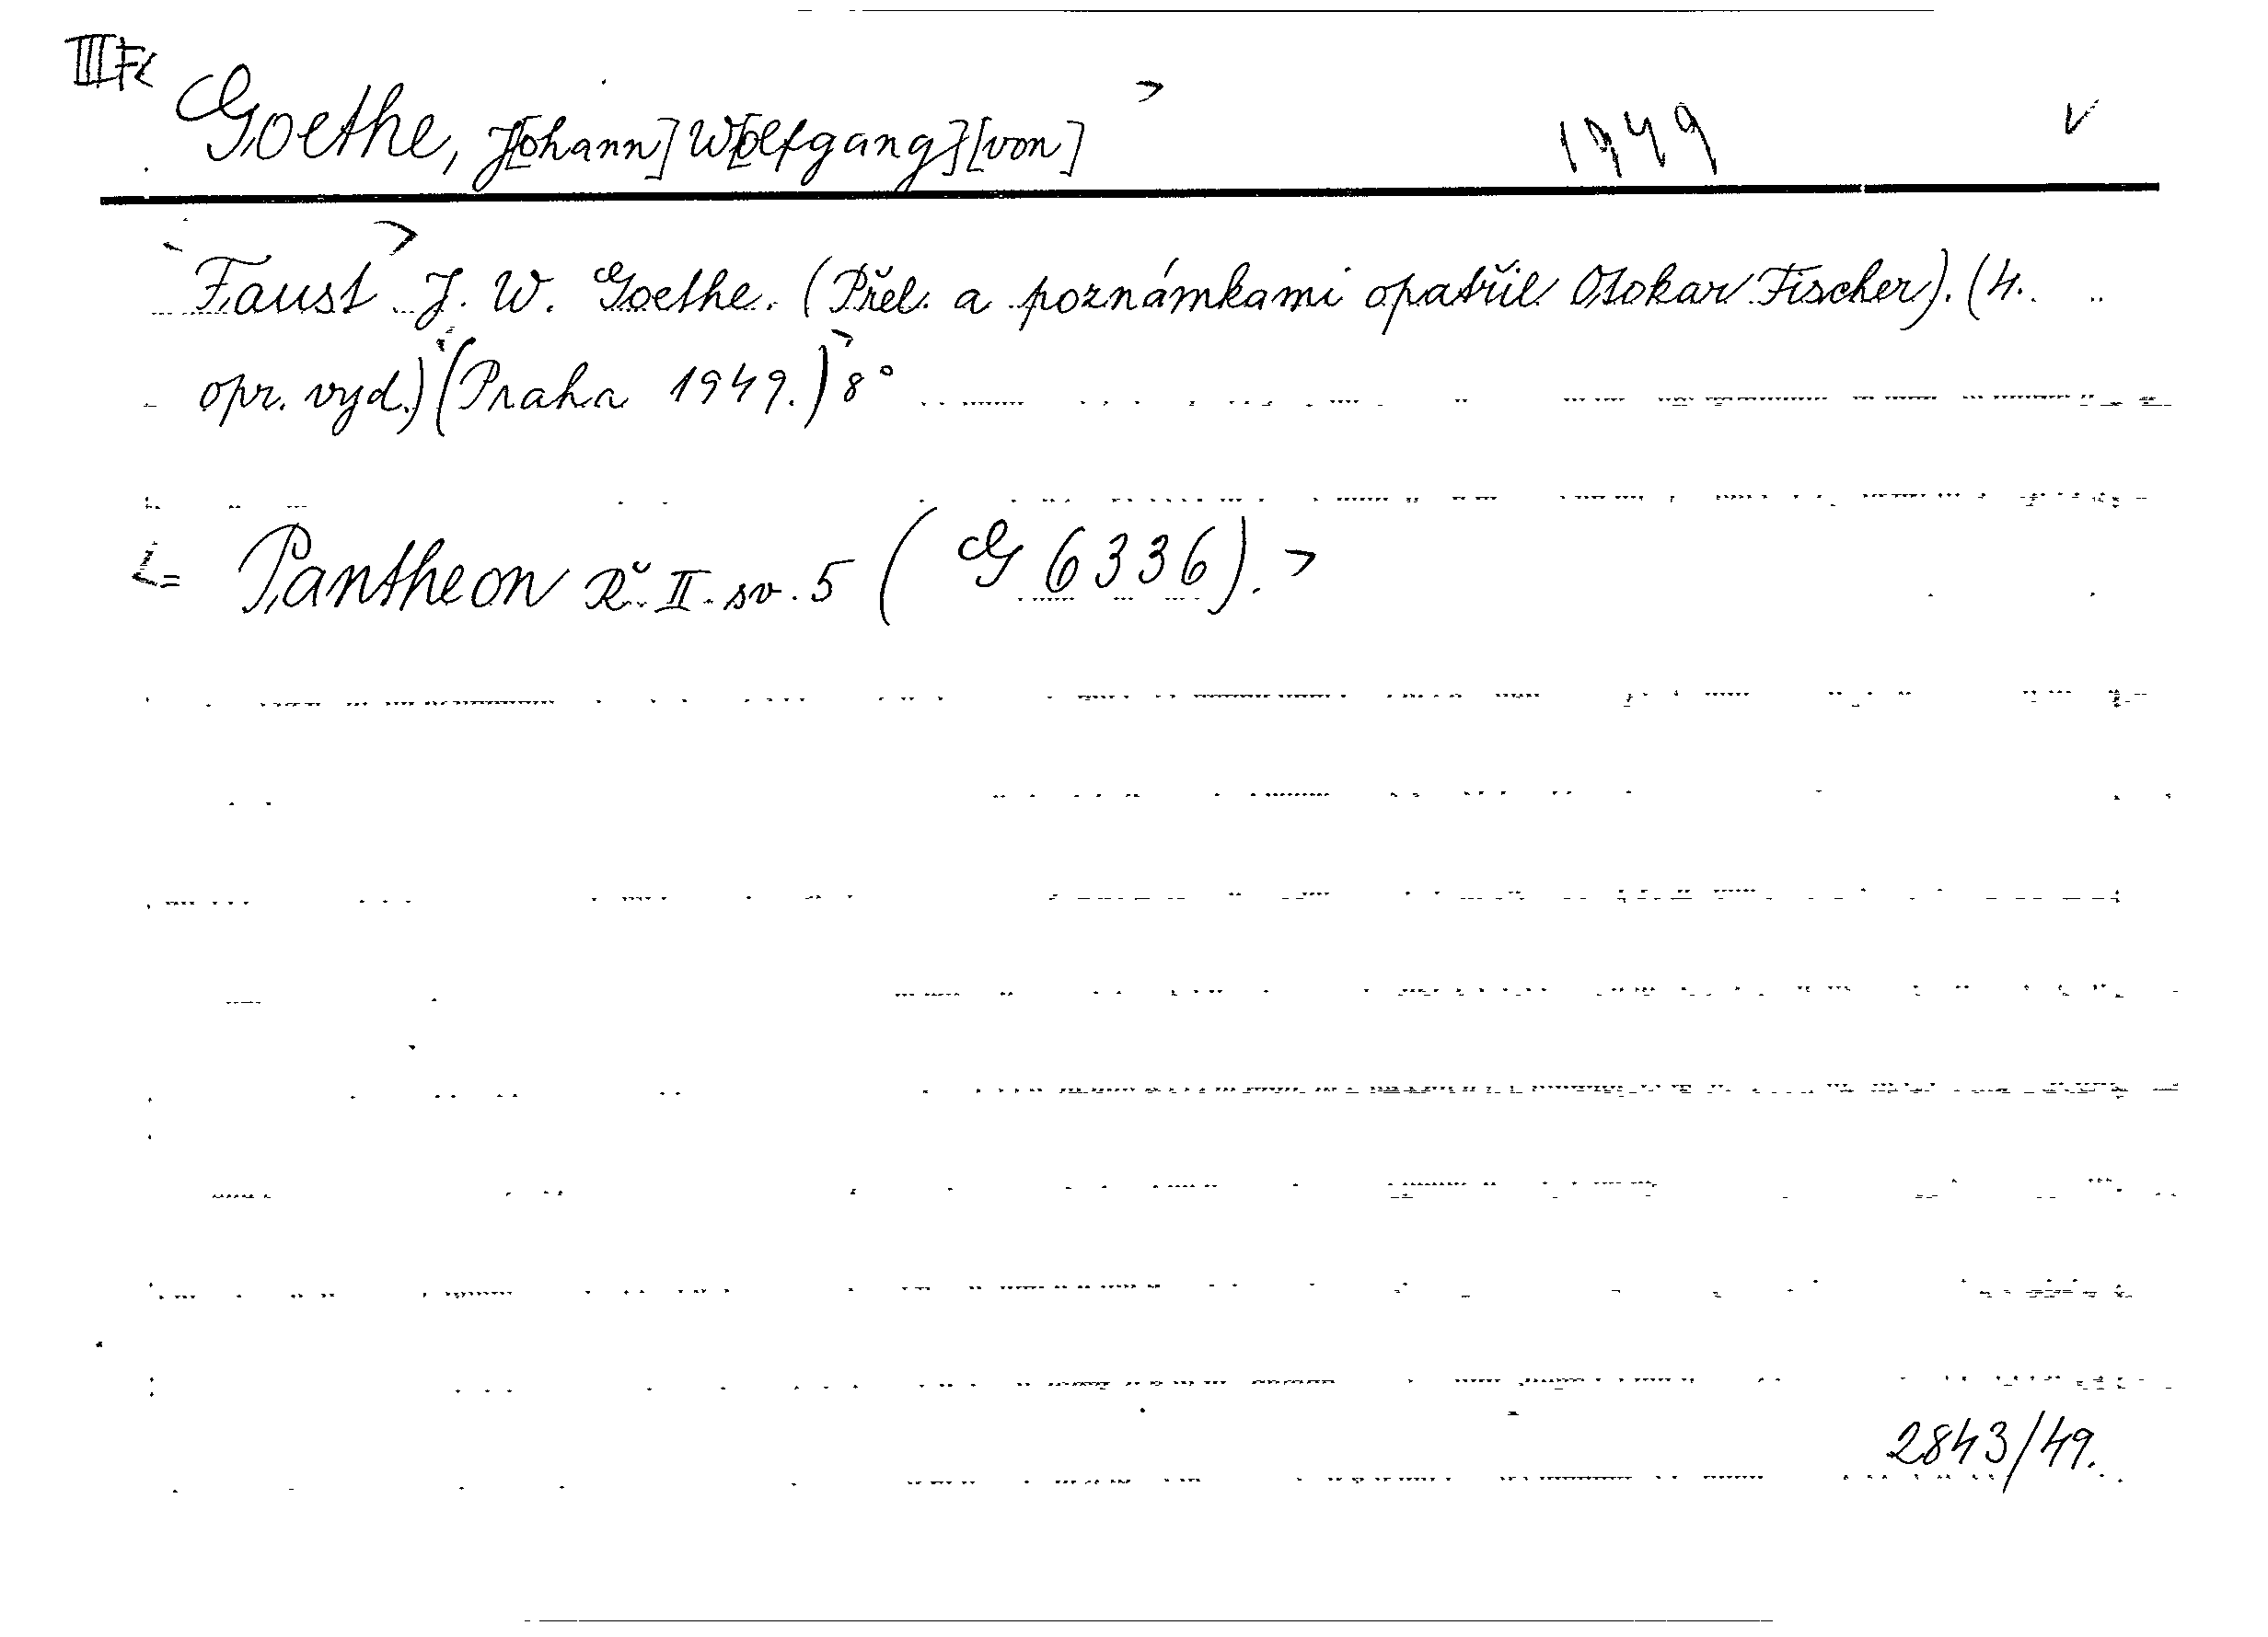 Goethe, J[ohann] W[olfgang] [von] 1949
Faust J. W. Goethe. (Přel. a poznámkami opatřil Otokar Fischer). (4.
opr. vyd.) (Praha 1949.) 8°
Pantheon Ř. II. sv. 5 (G 6336).
2843/49.